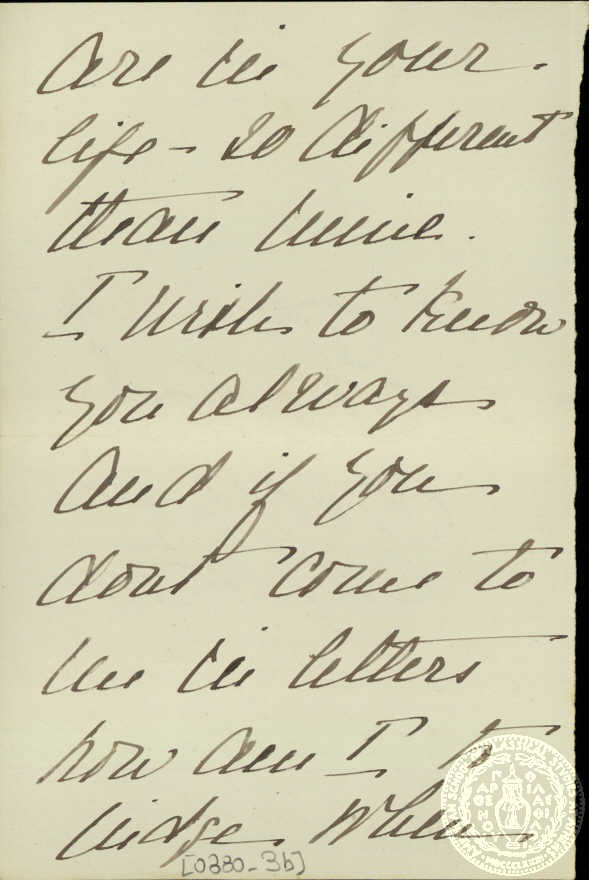 are in your
life - so different
than mine.
I wish to know
you always
and if you
dont come to
me in letters
how am I to
judge. When
[0380-3b]